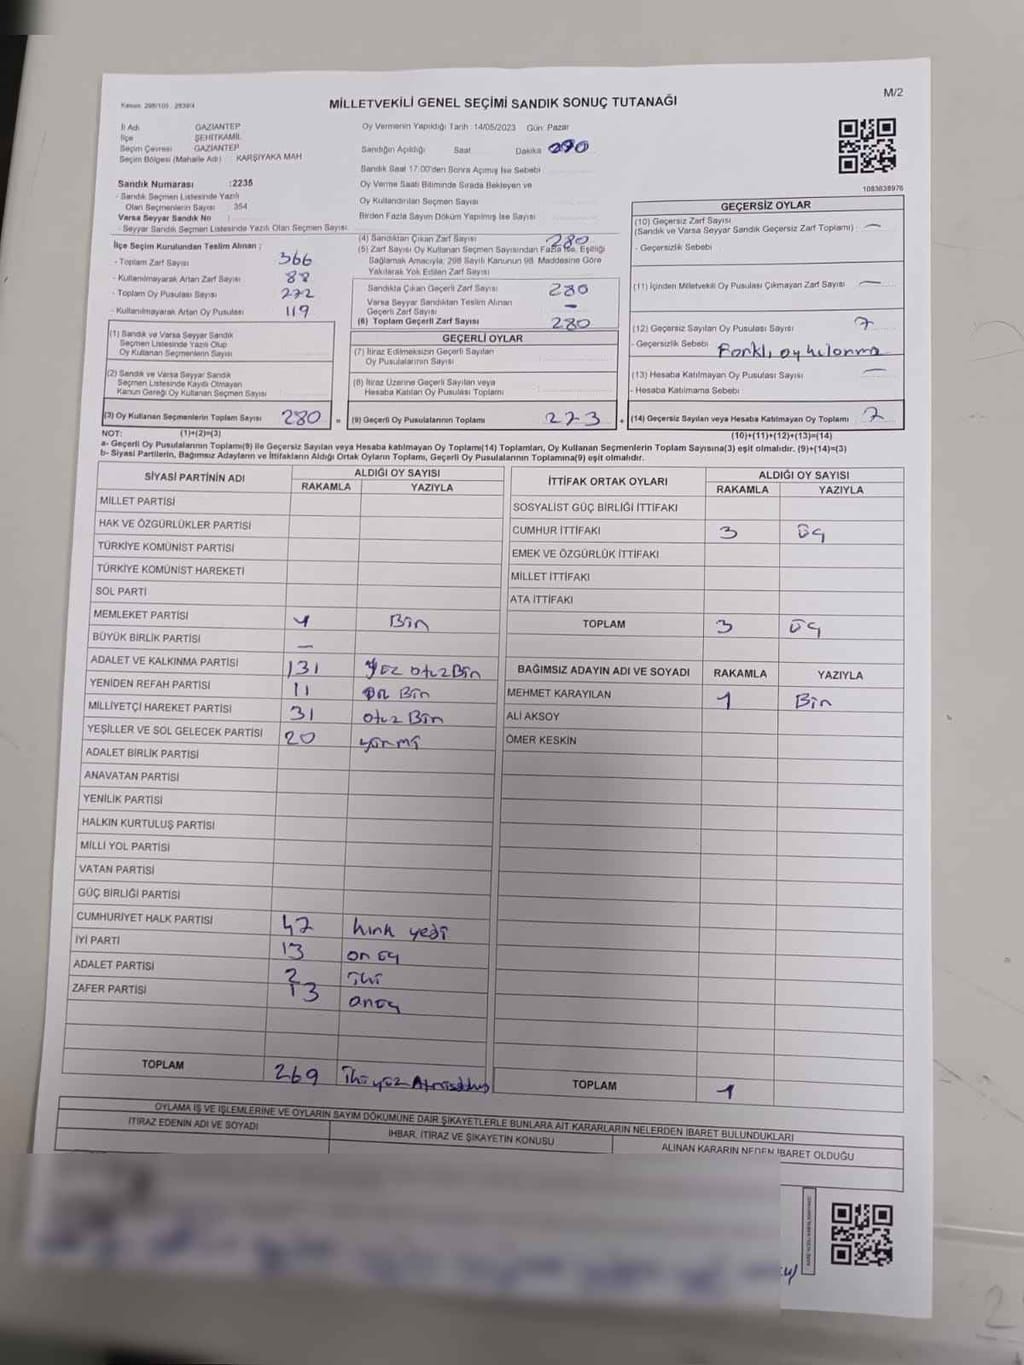 Kanun: 298/105 - 2839/4
MİLLETVEKİLİ GENEL SEÇİMİ SANDIK SONUÇ TUTANAĞI
M/2
İl Adı GAZİANTEP
İlçe ŞEHİTKAMİL
Seçim Çevresi GAZİANTEP
Seçim Bölgesi (Mahalle Adı) KARŞIYAKA MAH
Oy Vermenin Yapıldığı Tarih :14/05/2023 Gün: Pazar
Sandığın Açıldığı Saat Dakika
Sandık Saat 17:00'den Sonra Açımış İse Sebebi
Oy Verme Saati Bitiminde Sırada Bekleyen ve
Oy Kullandırılan Seçmen Sayısı
Birden Fazla Sayım Döküm Yapılmış İse Sayısı
1083038976
Sandık Numarası :2235
- Sandık Seçmen Listesinde Yazılı
Olan Seçmenlerin Sayısı : 354
Varsa Seyyar Sandık No
- Seyyar Sandık Seçmen Listesinde Yazılı Olan Seçmen Sayısı
İlçe Seçim Kurulundan Teslim Alınan ;
- Toplam Zarf Sayısı 366
- Kullanılmayarak Artan Zarf Sayısı 88
- Toplam Oy Pusulası Sayısı
- Kullanılmayarak Artan Oy Pusulası 119
(1) Sandık ve Varsa Seyyar Sandık
Seçmen Listesinde Yazılı Olup
Oy Kullanan Seçmenlerin Sayısı
(2) Sandık ve Varsa Seyyar Sandık
Seçmen Listesinde Kayıtlı Olmayan
Kanun Gereği Oy Kullanan Seçmen Sayısı
(3) Oy Kullanan Seçmenlerin Toplam Sayısı 280 =
(4) Sandıktan Çıkan Zarf Sayısı 280
(5) Zarf Sayısı Oy Kullanan Seçmen Sayısından Fazla İse, Eşitliği
Sağlamak Amacıyla; 298 Sayılı Kanunun 98. Maddesine Göre
Yakılarak Yok Edilen Zarf Sayısı
Sandıkta Çıkan Geçerli Zarf Sayısı 280
Varsa Seyyar Sandıktan Teslim Alınan
Geçerli Zarf Sayısı –
(6) Toplam Geçerli Zarf Sayısı 280
GEÇERLİ OYLAR
(7) İtiraz Edilmeksizin Geçerli Sayılan
Oy Pusulalarının Sayısı
(8) İtiraz Üzerine Geçerli Sayılan veya
Hesaba Katılan Oy Pusulası Toplamı
(9) Geçerli Oy Pusulalarının Toplamı 273 +
GEÇERSİZ OYLAR
(10) Geçersiz Zarf Sayısı
(Sandık ve Varsa Seyyar Sandık Geçersiz Zarf Toplamı) : —
- Geçersizlik Sebebi
(11) İçinden Milletvekili Oy Pusulası Çıkmayan Zarf Sayısı —
(12) Geçersiz Sayılan Oy Pusulası Sayısı 7
- Geçersizlik Sebebi Farklı oy kullanma
(13) Hesaba Katılmayan Oy Pusulası Sayısı —
- Hesaba Katılmama Sebebi
(14) Geçersiz Sayılan veya Hesaba Katılmayan Oy Toplamı 7
NOT: (1)+(2)=(3)
(10)+(11)+(12)+(13)=(14)
a- Geçerli Oy Pusulalarının Toplamı(9) ile Geçersiz Sayılan veya Hesaba katılmayan Oy Toplamı(14) Toplamları, Oy Kullanan Seçmenlerin Toplam Sayısına(3) eşit olmalıdır. (9)+(14)=(3)
b- Siyasi Partilerin, Bağımsız Adayların ve İttifakların Aldığı Ortak Oyların Toplamı, Geçerli Oy Pusulalarının Toplamına(9) eşit olmalıdır.
SİYASİ PARTİNİN ADI ALDIĞI OY SAYISI
RAKAMLA YAZIYLA
MİLLET PARTİSİ
HAK VE ÖZGÜRLÜKLER PARTİSİ
TÜRKİYE KOMÜNİST PARTİSİ
TÜRKİYE KOMÜNİST HAREKETİ
SOL PARTİ
MEMLEKET PARTİSİ 1 Bir
BÜYÜK BİRLİK PARTİSİ —
ADALET VE KALKINMA PARTİSİ 131 Yüz otuz Bir
YENİDEN REFAH PARTİSİ 11 On Bir
MİLLİYETÇİ HAREKET PARTİSİ 31 otuz Bir
YEŞİLLER VE SOL GELECEK PARTİSİ 20 yirmi
ADALET BİRLİK PARTİSİ
ANAVATAN PARTİSİ
YENİLİK PARTİSİ
HALKIN KURTULUŞ PARTİSİ
MİLLİ YOL PARTİSİ
VATAN PARTİSİ
GÜÇ BİRLİĞİ PARTİSİ
CUMHURİYET HALK PARTİSİ 47 kırk yedi
İYİ PARTİ 13 on üç
ADALET PARTİSİ 2 iki
ZAFER PARTİSİ 13 onüç
TOPLAM 269 İki yüz Atmışdokuz
İTTİFAK ORTAK OYLARI ALDIĞI OY SAYISI
RAKAMLA YAZIYLA
SOSYALİST GÜÇ BİRLİĞİ İTTİFAKI
CUMHUR İTTİFAKI 3 üç
EMEK VE ÖZGÜRLÜK İTTİFAKI
MİLLET İTTİFAKI
ATA İTTİFAKI
TOPLAM 3 üç
BAĞIMSIZ ADAYIN ADI VE SOYADI RAKAMLA YAZIYLA
MEHMET KARAYILAN 1 Bir
ALİ AKSOY
ÖMER KESKİN
TOPLAM 1
OYLAMA İŞ VE İŞLEMLERİNE VE OYLARIN SAYIM DÖKÜMÜNE DAİR ŞİKAYETLERLE BUNLARA AİT KARARLARIN NELERDEN İBARET BULUNDUKLARI
İTİRAZ EDENİN ADI VE SOYADI İHBAR, İTİRAZ VE ŞİKAYETİN KONUSU ALINAN KARARIN NEDEN İBARET OLDUĞU